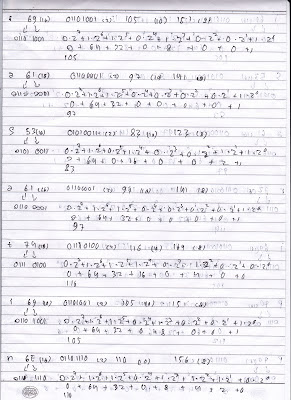 i 69 (16) 01101001 (2) 105 (10) 151 (8)
0110 1001 0.2⁷+1.2⁶+1.2⁵+0.2⁴+1.2³+0.2²+0.2¹+1.2⁰
0 + 64 + 32 + 0 + 8 + 0 + 0 + 1
105
a 61 (16) 01100001 (2) 97 (10) 141 (8)
0110 0001 0.2⁷+1.2⁶+1.2⁵+0.2⁴+0.2³+0.2²+0.2¹+1.2⁰
0 + 64 + 32 + 0 + 0 + 0 + 0 + 1
97
S 53 (16) 01010011 (2) 83 (10) 123 (8)
0101 0011 0.2⁷+1.2⁶+0.2⁵+1.2⁴+0.2³+0.2²+1.2¹+1.2⁰
0 + 64 + 0 + 16 + 0 + 0 + 2 + 1
83
a 61 (16) (2) 97 (10) 141 (8)
0110 0001 0.2⁷+1.2⁶+1.2⁵+0.2⁴+0.2³+0.2²+0.2¹+1.2⁰
0 + 64 + 32 + 0 + 0 + 0 + 0
97
t 74 (16) (2) 116 (10) 164 (8)
0111 0100 0.2⁷+1.2⁶+1.2⁵+1.2⁴+0.2³+1.2²+0.2¹+0.2⁰
0 + 64 + 32 + 16 + 0 + 4 + 0 + 0
116
i 69 (16) 01101001 (2) 105 (10) 151 (8)
0110 1001
0 + 64 + 32 + 0 + 8 + 0 + 0 + 1
105
n 6E (16) 01101110 (2) 110 (10) 156 (8)
0110 1110
110